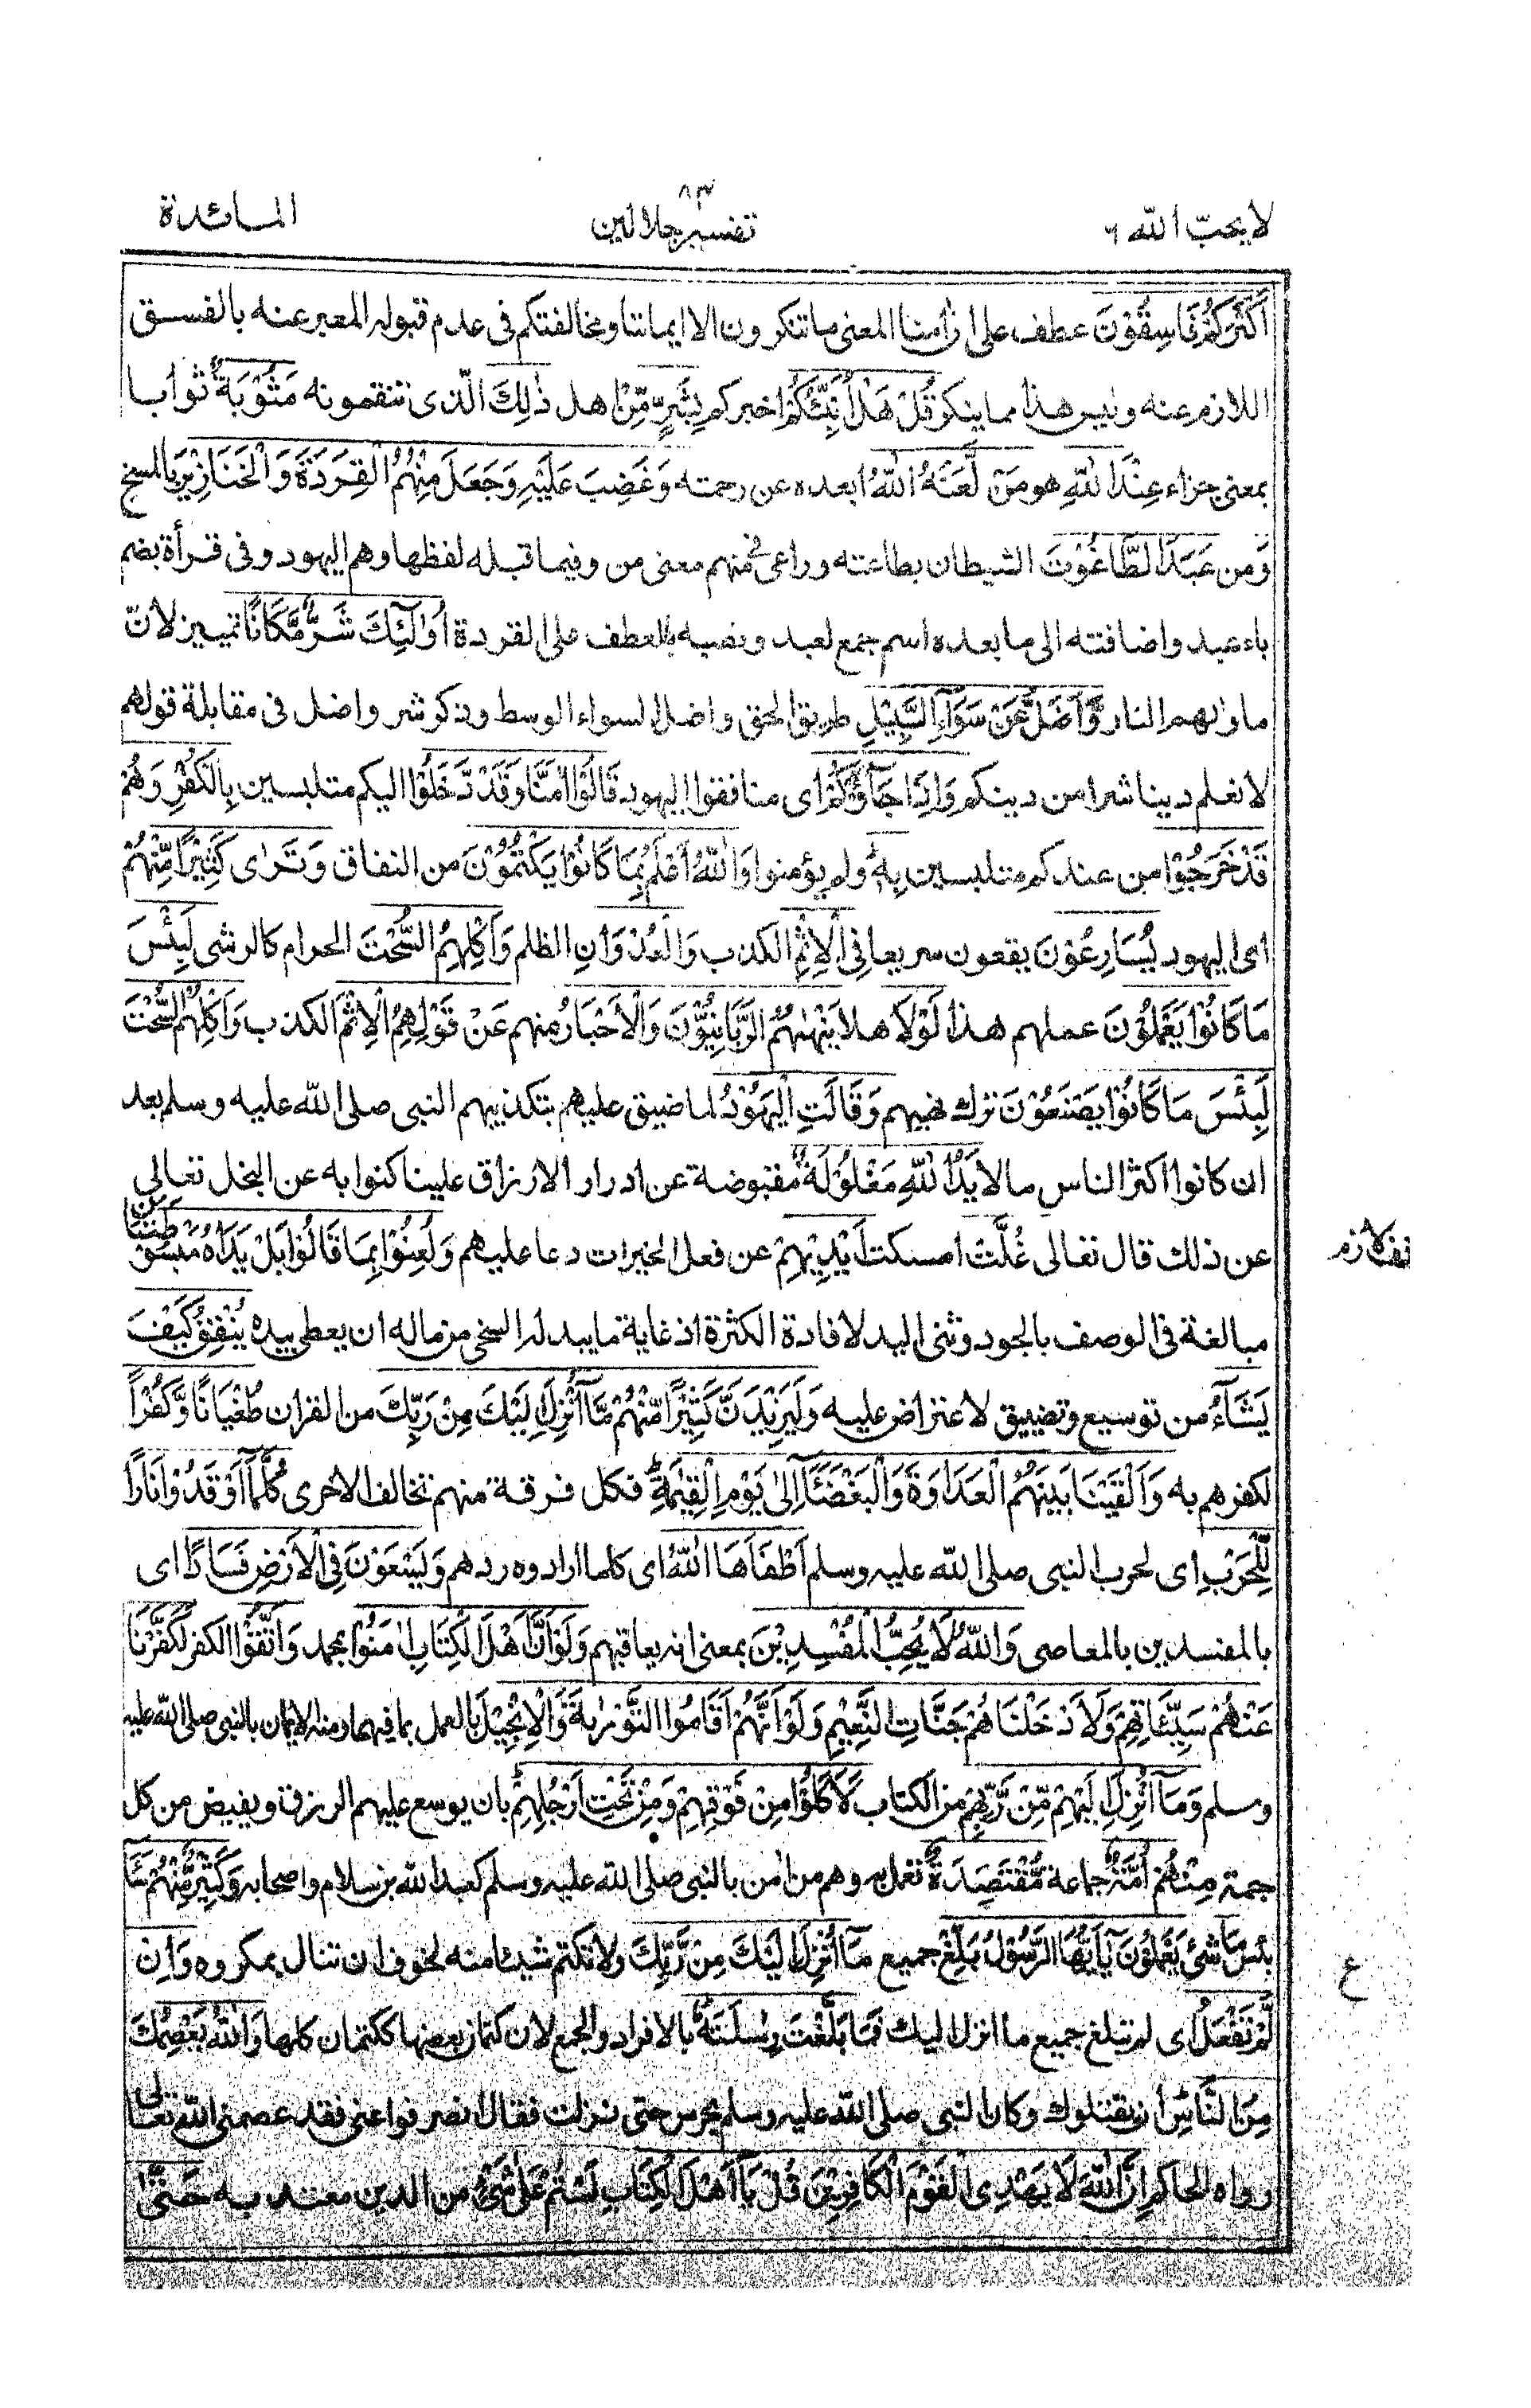 لا يحبّ الله ٦
٨٣
تفسير جلالين
المائدة
أَكْثَرَكُمْ فَاسِقُوْنَ عطف على ان اٰمنا المعنى ما تنكرون الا ايماننا ومخالفتكم فى عدم قبوله المعبر عنه بالفسق
اللازم عنه وليس هذا مما ينكر قُلْ هَلْ اُنَبِّئُكُمْ اخبركم بِشَرٍّ مِّنْ اهل ذٰلِكَ الّذى تنقمونه مَثُوْبَةً ثوابا
بمعنى جزاء عِنْدَ اللّٰهِ هو مَنْ لَّعَنَهُ اللّٰهُ ابعده عن رحمته وَغَضِبَ عَلَيْهِ وَجَعَلَ مِنْهُمُ الْقِرَدَةَ وَالْخَنَازِيْرَ بالمسخ
وَمن عَبَدَ الطَّاغُوْتَ الشيطان بطاعته وراعى فى منهم معنى من وفيما قبله لفظها وهم اليهود وفى قرأة بضم
باء عبد واضافته الى ما بعده اسم جمع لعبد ونصبه بالعطف على القردة اُولٰٓئِكَ شَرٌّ مَّكَانًا تمييز لانّ
ماوٰىهم النار وَّاَضَلُّ عَنْ سَوَآءِ السَّبِيْلِ طريق الحق واصل السواء الوسط وذكر شر واضل فى مقابلة قولهم
لا نعلم دينا شرا من دينكم وَاِذَا جَآؤُكُمْ اى منافقوا اليهود قَالُوْا اٰمَنَّا وَقَدْ دَّخَلُوْا اليكم متلبسين بِالْكُفْرِ وَهُمْ
قَدْ خَرَجُوْا من عندكم متلبسين بِهٖ ولم يؤمنوا وَاللّٰهُ اَعْلَمُ بِمَا كَانُوْا يَكْتُمُوْنَ من النفاق وَتَرٰى كَثِيْرًا مِّنْهُمْ
اى اليهود يُسَارِعُوْنَ يقعون سريعا فِى الْاِثْمِ الكذب وَالْعُدْوَانِ الظلم وَاَكْلِهِمُ السُّحْتَ الحرام كالرشى لَبِئْسَ
مَا كَانُوْا يَعْمَلُوْنَ عملهم هذا لَوْلَا هلا يَنْهٰىهُمُ الرَّبَّانِيُّوْنَ وَالْاَحْبَارُ منهم عَنْ قَوْلِهِمُ الْاِثْمَ الكذب وَاَكْلِهِمُ السُّحْتَ
لَبِئْسَ مَا كَانُوْا يَصْنَعُوْنَ ترك نهيهم وَقَالَتِ الْيَهُوْدُ لما ضيق عليهم بتكذيبهم النبى صلى الله عليه وسلم بعد
ان كانوا اكثر الناس مالا يَدُ اللّٰهِ مَغْلُوْلَةٌ مقبوضة عن ادرار الارزاق علينا كنوا به عن البخل تعالى
عن ذلك قال تعالى غُلَّتْ امسكت اَيْدِيْهِمْ عن فعل الخيرات دعا عليهم وَلُعِنُوْا بِمَا قَالُوْا بَلْ يَدَاهُ مَبْسُوْطَتٰنِ
مبالغة فى الوصف بالجود وثنى اليد لافادة الكثرة اذ غاية ما يبذله السخى من ماله ان يعطى بيده يُنْفِقُ كَيْفَ
يَشَآءُ من توسيع وتضييق لا اعتراض عليه وَلَيَزِيْدَنَّ كَثِيْرًا مِّنْهُمْ مَّآ اُنْزِلَ اِلَيْكَ مِنْ رَّبِّكَ من القران طُغْيَانًا وَّكُفْرًا
لكفرهم به وَاَلْقَيْنَا بَيْنَهُمُ الْعَدَاوَةَ وَالْبَغْضَآءَ اِلٰى يَوْمِ الْقِيٰمَةِ فكل فرقة منهم تخالف الاخرى كُلَّمَآ اَوْقَدُوْا نَارًا
لِّلْحَرْبِ اى لحرب النبى صلى الله عليه وسلم اَطْفَاَهَا اللّٰهُ اى كلما ارادوه ردهم وَيَسْعَوْنَ فِى الْاَرْضِ فَسَادًا اى
بالمفسدين بالمعاصى وَاللّٰهُ لَا يُحِبُّ الْمُفْسِدِيْنَ بمعنى انه يعاقبهم وَلَوْ اَنَّ اَهْلَ الْكِتَابِ اٰمَنُوْا بمحمد وَاتَّقَوْا الكفر لَكَفَّرْنَا
عَنْهُمْ سَيِّئَاتِهِمْ وَلَاَدْخَلْنَاهُمْ جَنَّاتِ النَّعِيْمِ وَلَوْ اَنَّهُمْ اَقَامُوا التَّوْرٰىةَ وَالْاِنْجِيْلَ بالعمل بما فيهما ومنه الايمان بالنبى صلى الله عليه
وسلم وَمَآ اُنْزِلَ اِلَيْهِمْ مِّنْ رَّبِّهِمْ من الكتاب لَاَكَلُوْا مِنْ فَوْقِهِمْ وَمِنْ تَحْتِ اَرْجُلِهِمْ بان يوسع عليهم الرزق ويفيض من كل
جهة مِنْهُمْ اُمَّةٌ جماعة مُّقْتَصِدَةٌ تعمل به وهم من اٰمن بالنبى صلى الله عليه وسلم كعبد الله بن سلام واصحابه وَكَثِيْرٌ مِّنْهُمْ سَآءَ
بئس مَا شئ يَعْمَلُوْنَ يٰٓاَيُّهَا الرَّسُوْلُ بَلِّغْ جميع مَآ اُنْزِلَ اِلَيْكَ مِنْ رَّبِّكَ ولا تكتم شيئا منه لخوف ان تنال بمكروه وَاِنْ
لَّمْ تَفْعَلْ اى لم تبلغ جميع ما انزل اليك فَمَا بَلَّغْتَ رِسٰلَتَهٗ بالافراد والجمع لان كتمان بعضها ككتمان كلها وَاللّٰهُ يَعْصِمُكَ
مِنَ النَّاسِ ان يقتلوك وكان النبى صلى الله عليه وسلم يحرس حتى نزلت فقال انصرفوا عنى فقد عصمنى الله تعالى
رواه الحاكم اِنَّ اللّٰهَ لَا يَهْدِى الْقَوْمَ الْكَافِرِيْنَ قُلْ يٰٓاَهْلَ الْكِتَابِ لَسْتُمْ عَلٰى شَىْءٍ من الدين معتد به حَتّٰى
ع